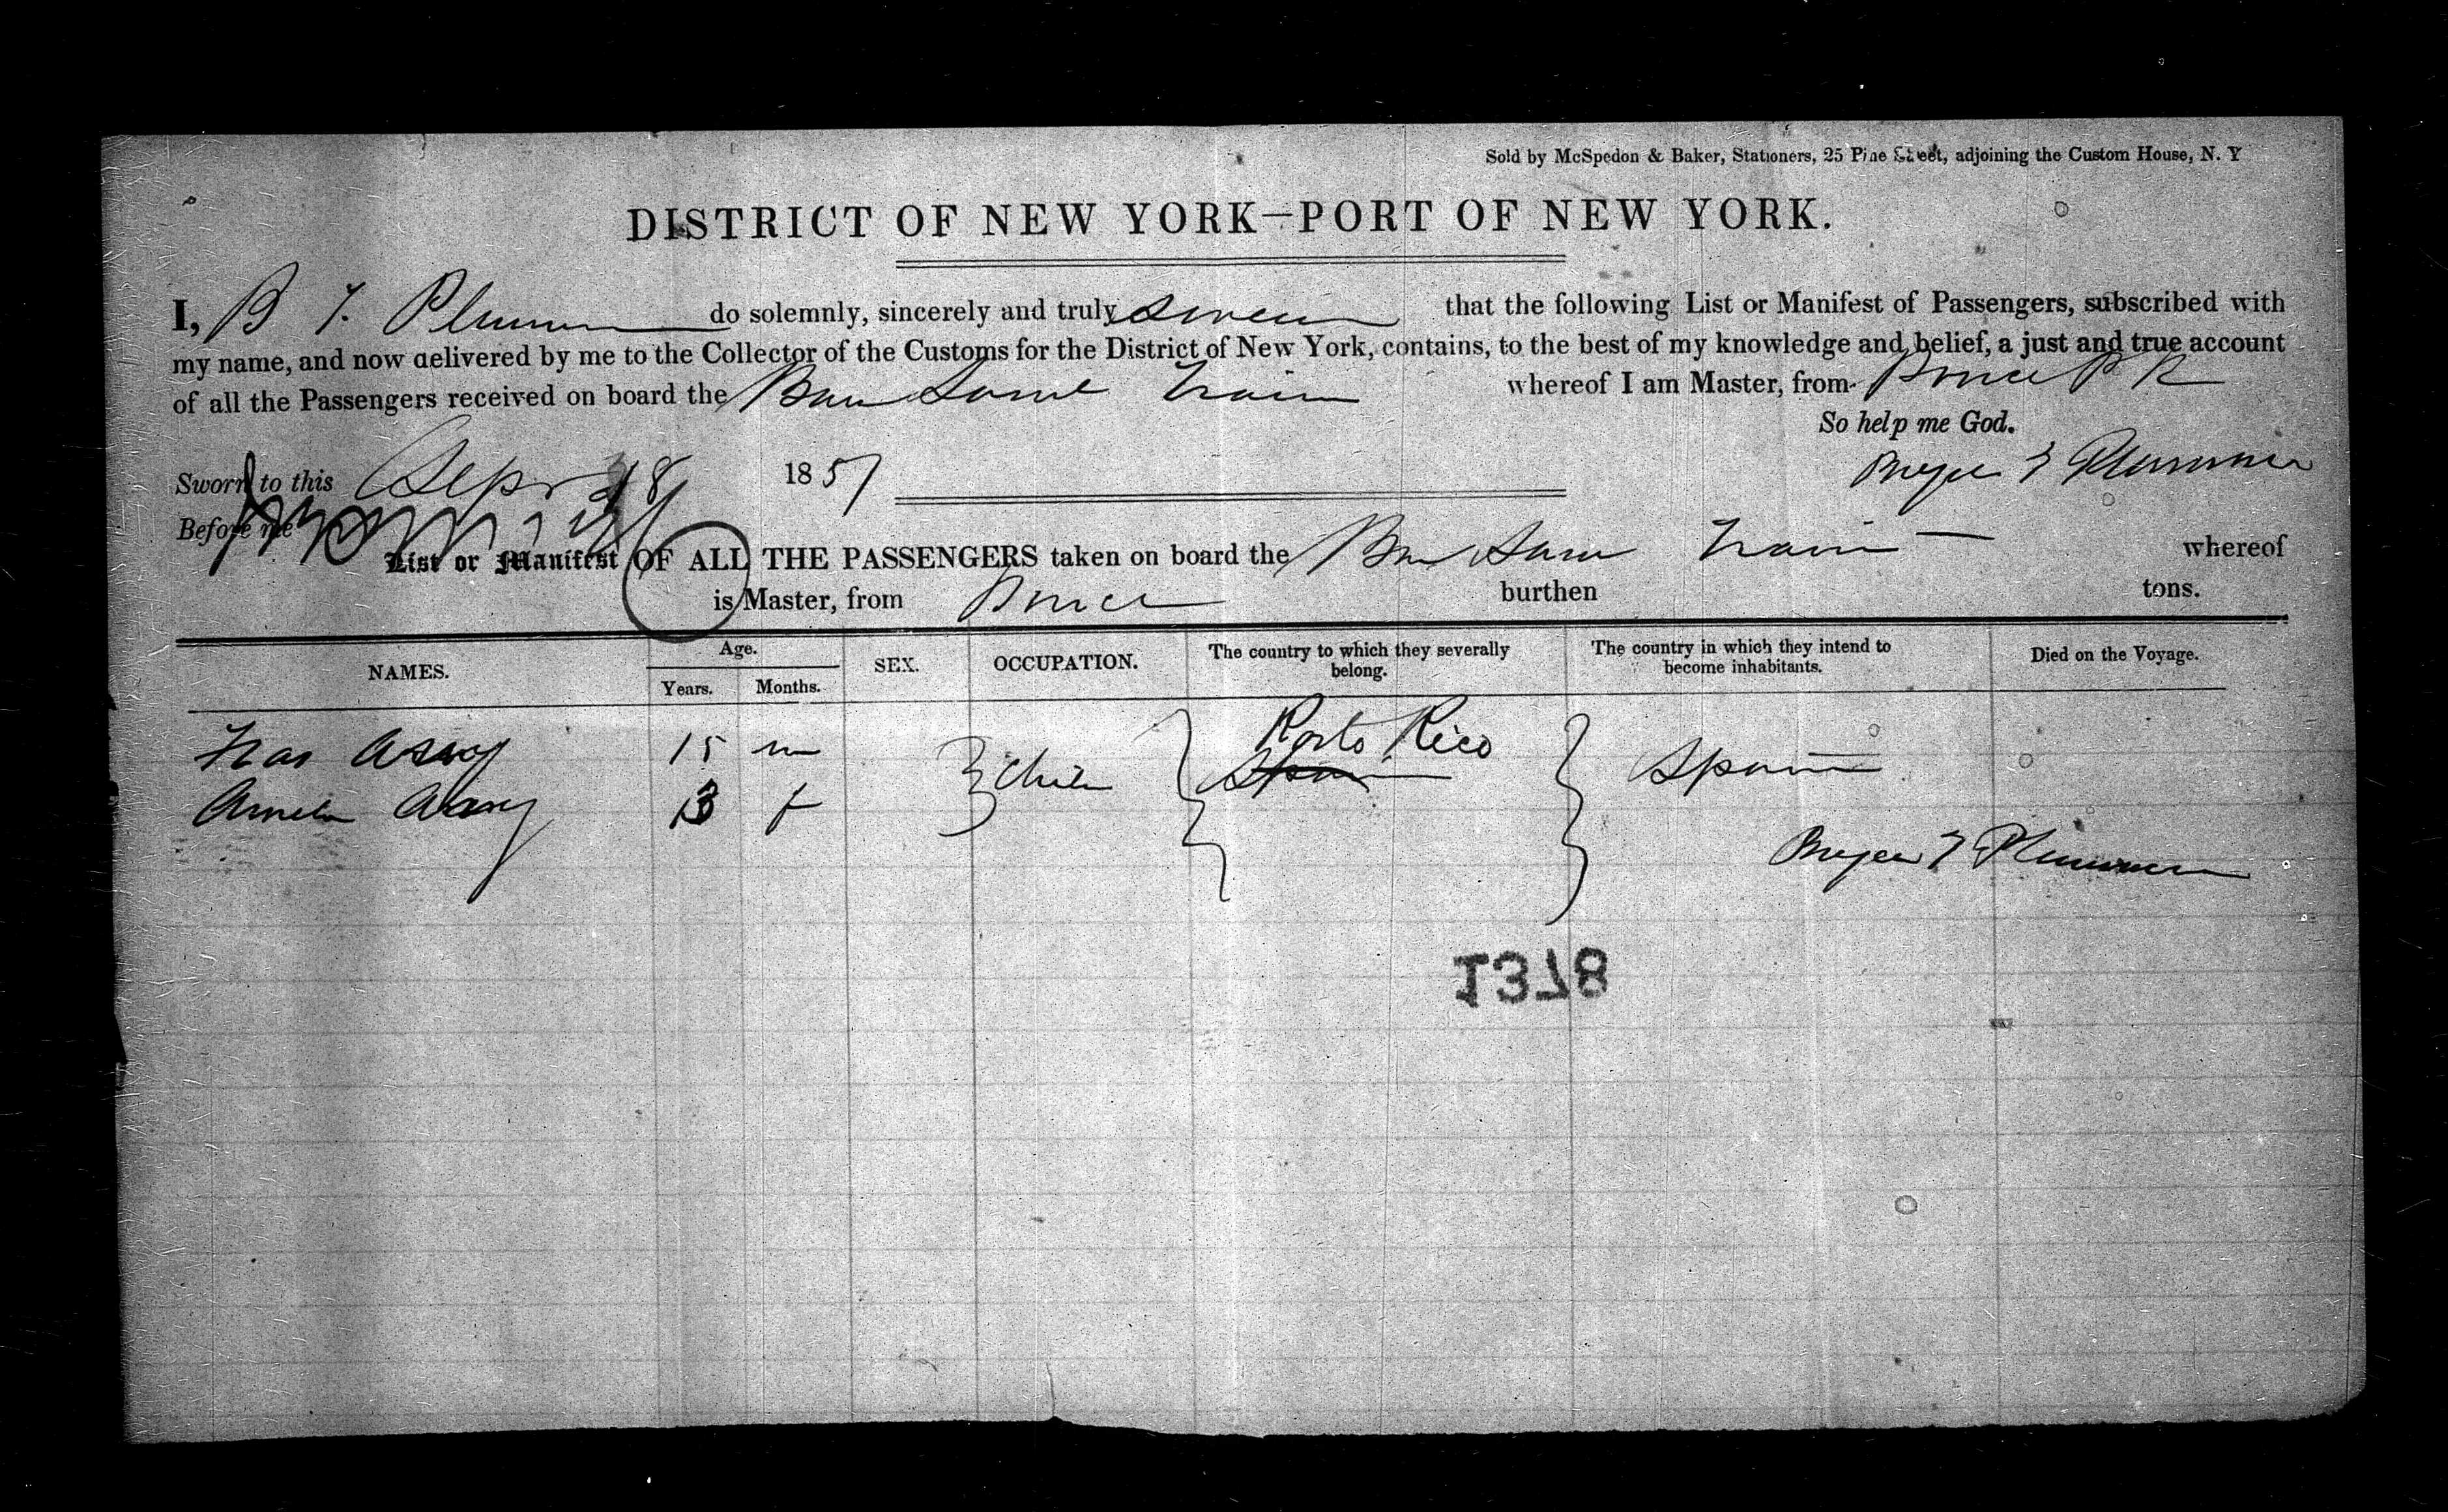 Sold by McSpedon & Baker, Stationers, 25 Pine Street, adjoining the Custom House, N. Y
DISTRICT OF NEW YORK—PORT OF NEW YORK.
I, B F. Plummer do solemnly, sincerely and truly swear that the following List or Manifest of Passengers, subscribed with
my name, and now delivered by me to the Collector of the Customs for the District of New York, contains, to the best of my knowledge and belief, a just and true account
of all the Passengers received on board the Train whereof I am Master, from Ponce P R
So help me God.
Sworn to this Sepr 18 1851 Plummer
Before me
List or Manifest OF ALL THE PASSENGERS taken on board the Train whereof
is Master, from Ponce burthen tons.
NAMES. Age. Years. Months. SEX. OCCUPATION. The country to which they severally belong. The country in which they intend to become inhabitants. Died on the Voyage.
15 m Porto Rico
Spain Spain
Amelia 13 f
Plummer
1378